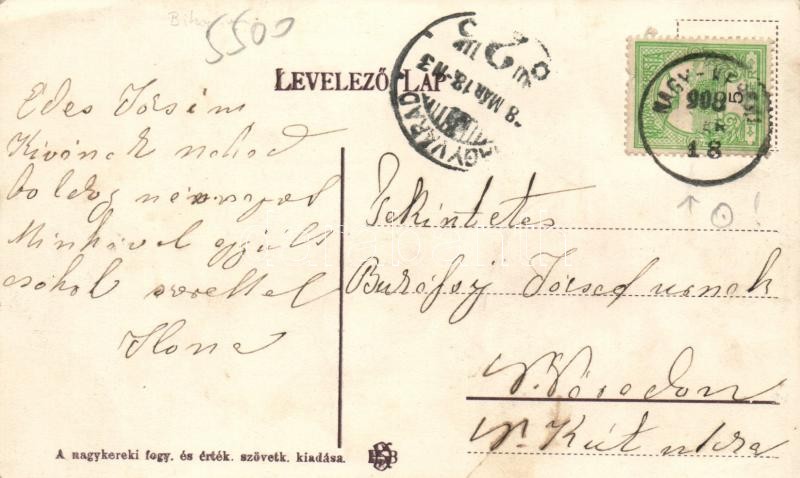 5500
LEVELEZŐ LAP
NAGYVÁRAD
8 MÁR 18
NAGY-
908
18
5
Edes Józsim
Kívánok neked
boldog névnapot
Minkával együtt
csokol szeretettel
Ilona
Tekintetes
József urnak
N. Váradon
N. Kút utca
A nagykereki fogy. és érték. szövetk. kiadása.